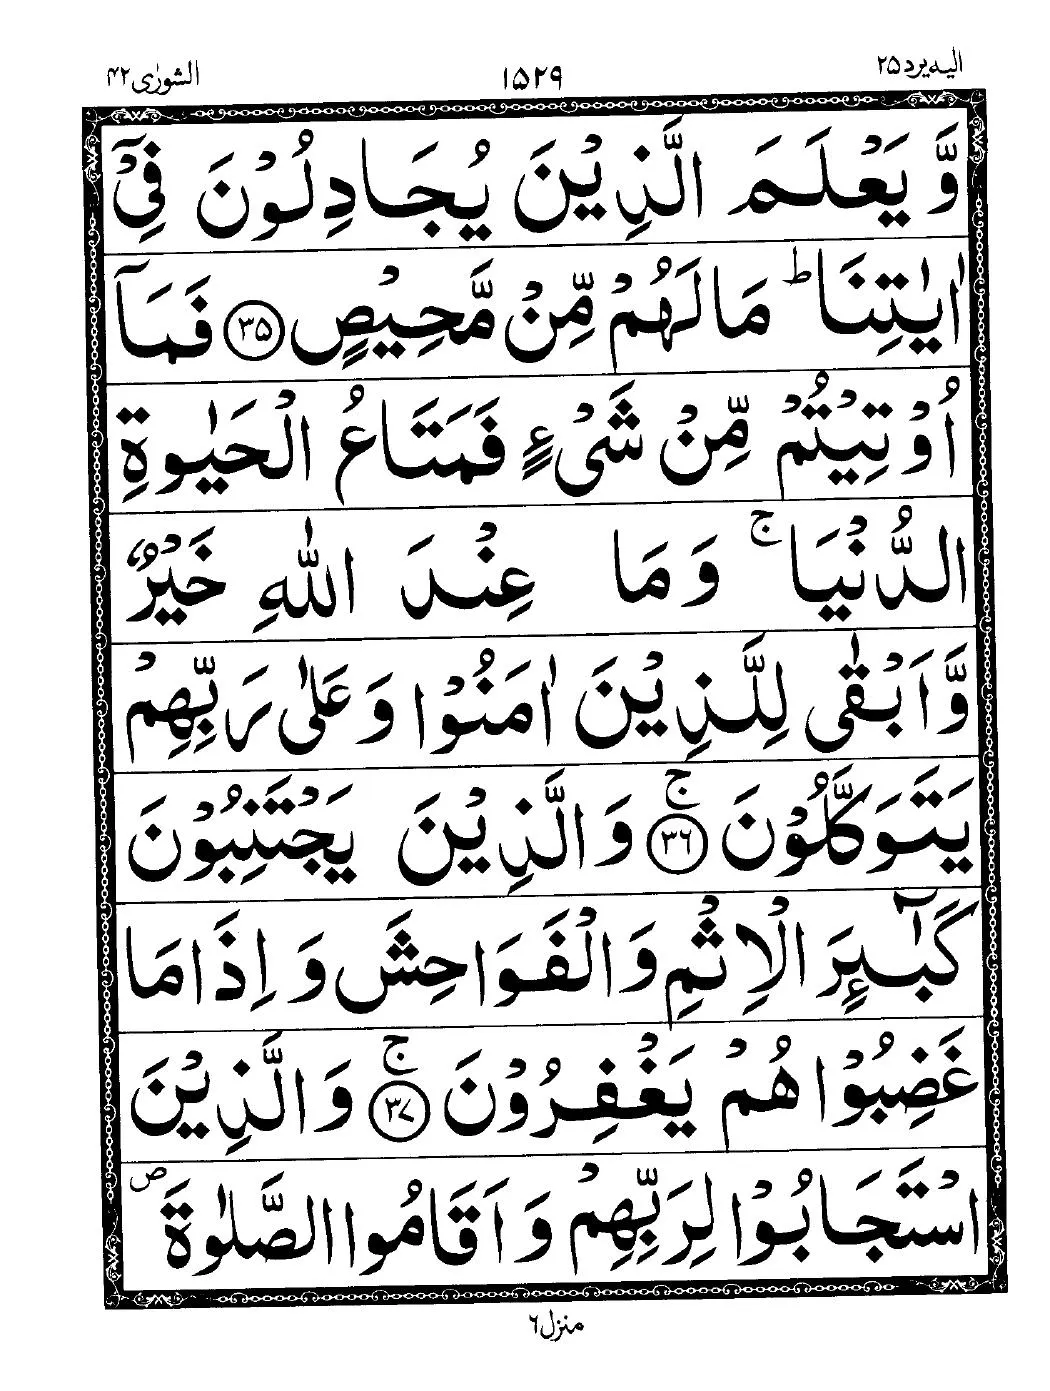 اليه يرد ٢٥ ١٥٢٩ الشورٰى ٤٢
وَّ يَعْلَمَ الَّذِيْنَ يُجَادِلُوْنَ فِيْۤ
اٰيٰتِنَا ؕ مَا لَهُمْ مِّنْ مَّحِيْصٍ ﴿۳۵﴾ فَمَاۤ
اُوْتِيْتُمْ مِّنْ شَىْءٍ فَمَتَاعُ الْحَيٰوةِ
الدُّنْيَا ۚ وَ مَا عِنْدَ اللّٰهِ خَيْرٌ
وَّ اَبْقٰى لِلَّذِيْنَ اٰمَنُوْا وَ عَلٰى رَبِّهِمْ
يَتَوَكَّلُوْنَ ﴿۳۶﴾ۚ وَ الَّذِيْنَ يَجْتَنِبُوْنَ
كَبٰٓئِرَ الْاِثْمِ وَ الْفَوَاحِشَ وَ اِذَا مَا
غَضِبُوْا هُمْ يَغْفِرُوْنَ ﴿۳۷﴾ۚ وَ الَّذِيْنَ
اسْتَجَابُوْا لِرَبِّهِمْ وَ اَقَامُوا الصَّلٰوةَ ۪
منزل ٦